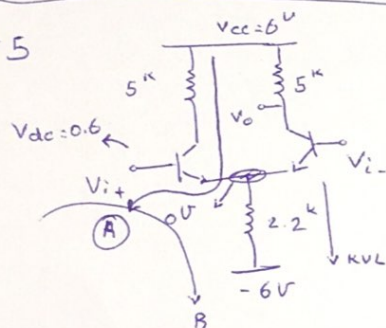 5
Vcc=6ᵛ
5ᵏ
5ᵏ
Vo
Vdc=0.6
Vi-
Vi+
A
0V
2.2ᵏ
KVL
-6V
B